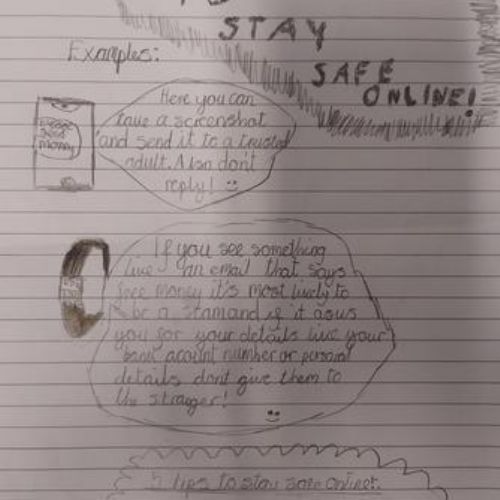 STAY
SAFE
ONLINE!
Examples:
Here you can
take a screenshot
and send it to a trusted
adult. Also don't
reply!
send
money
If you see something
like an email that says
free money it's most likely to
be a scam and if it asks
you for your details like your
bank account number or personal
details dont give them to
the stranger!
5 tips to stay safe online: